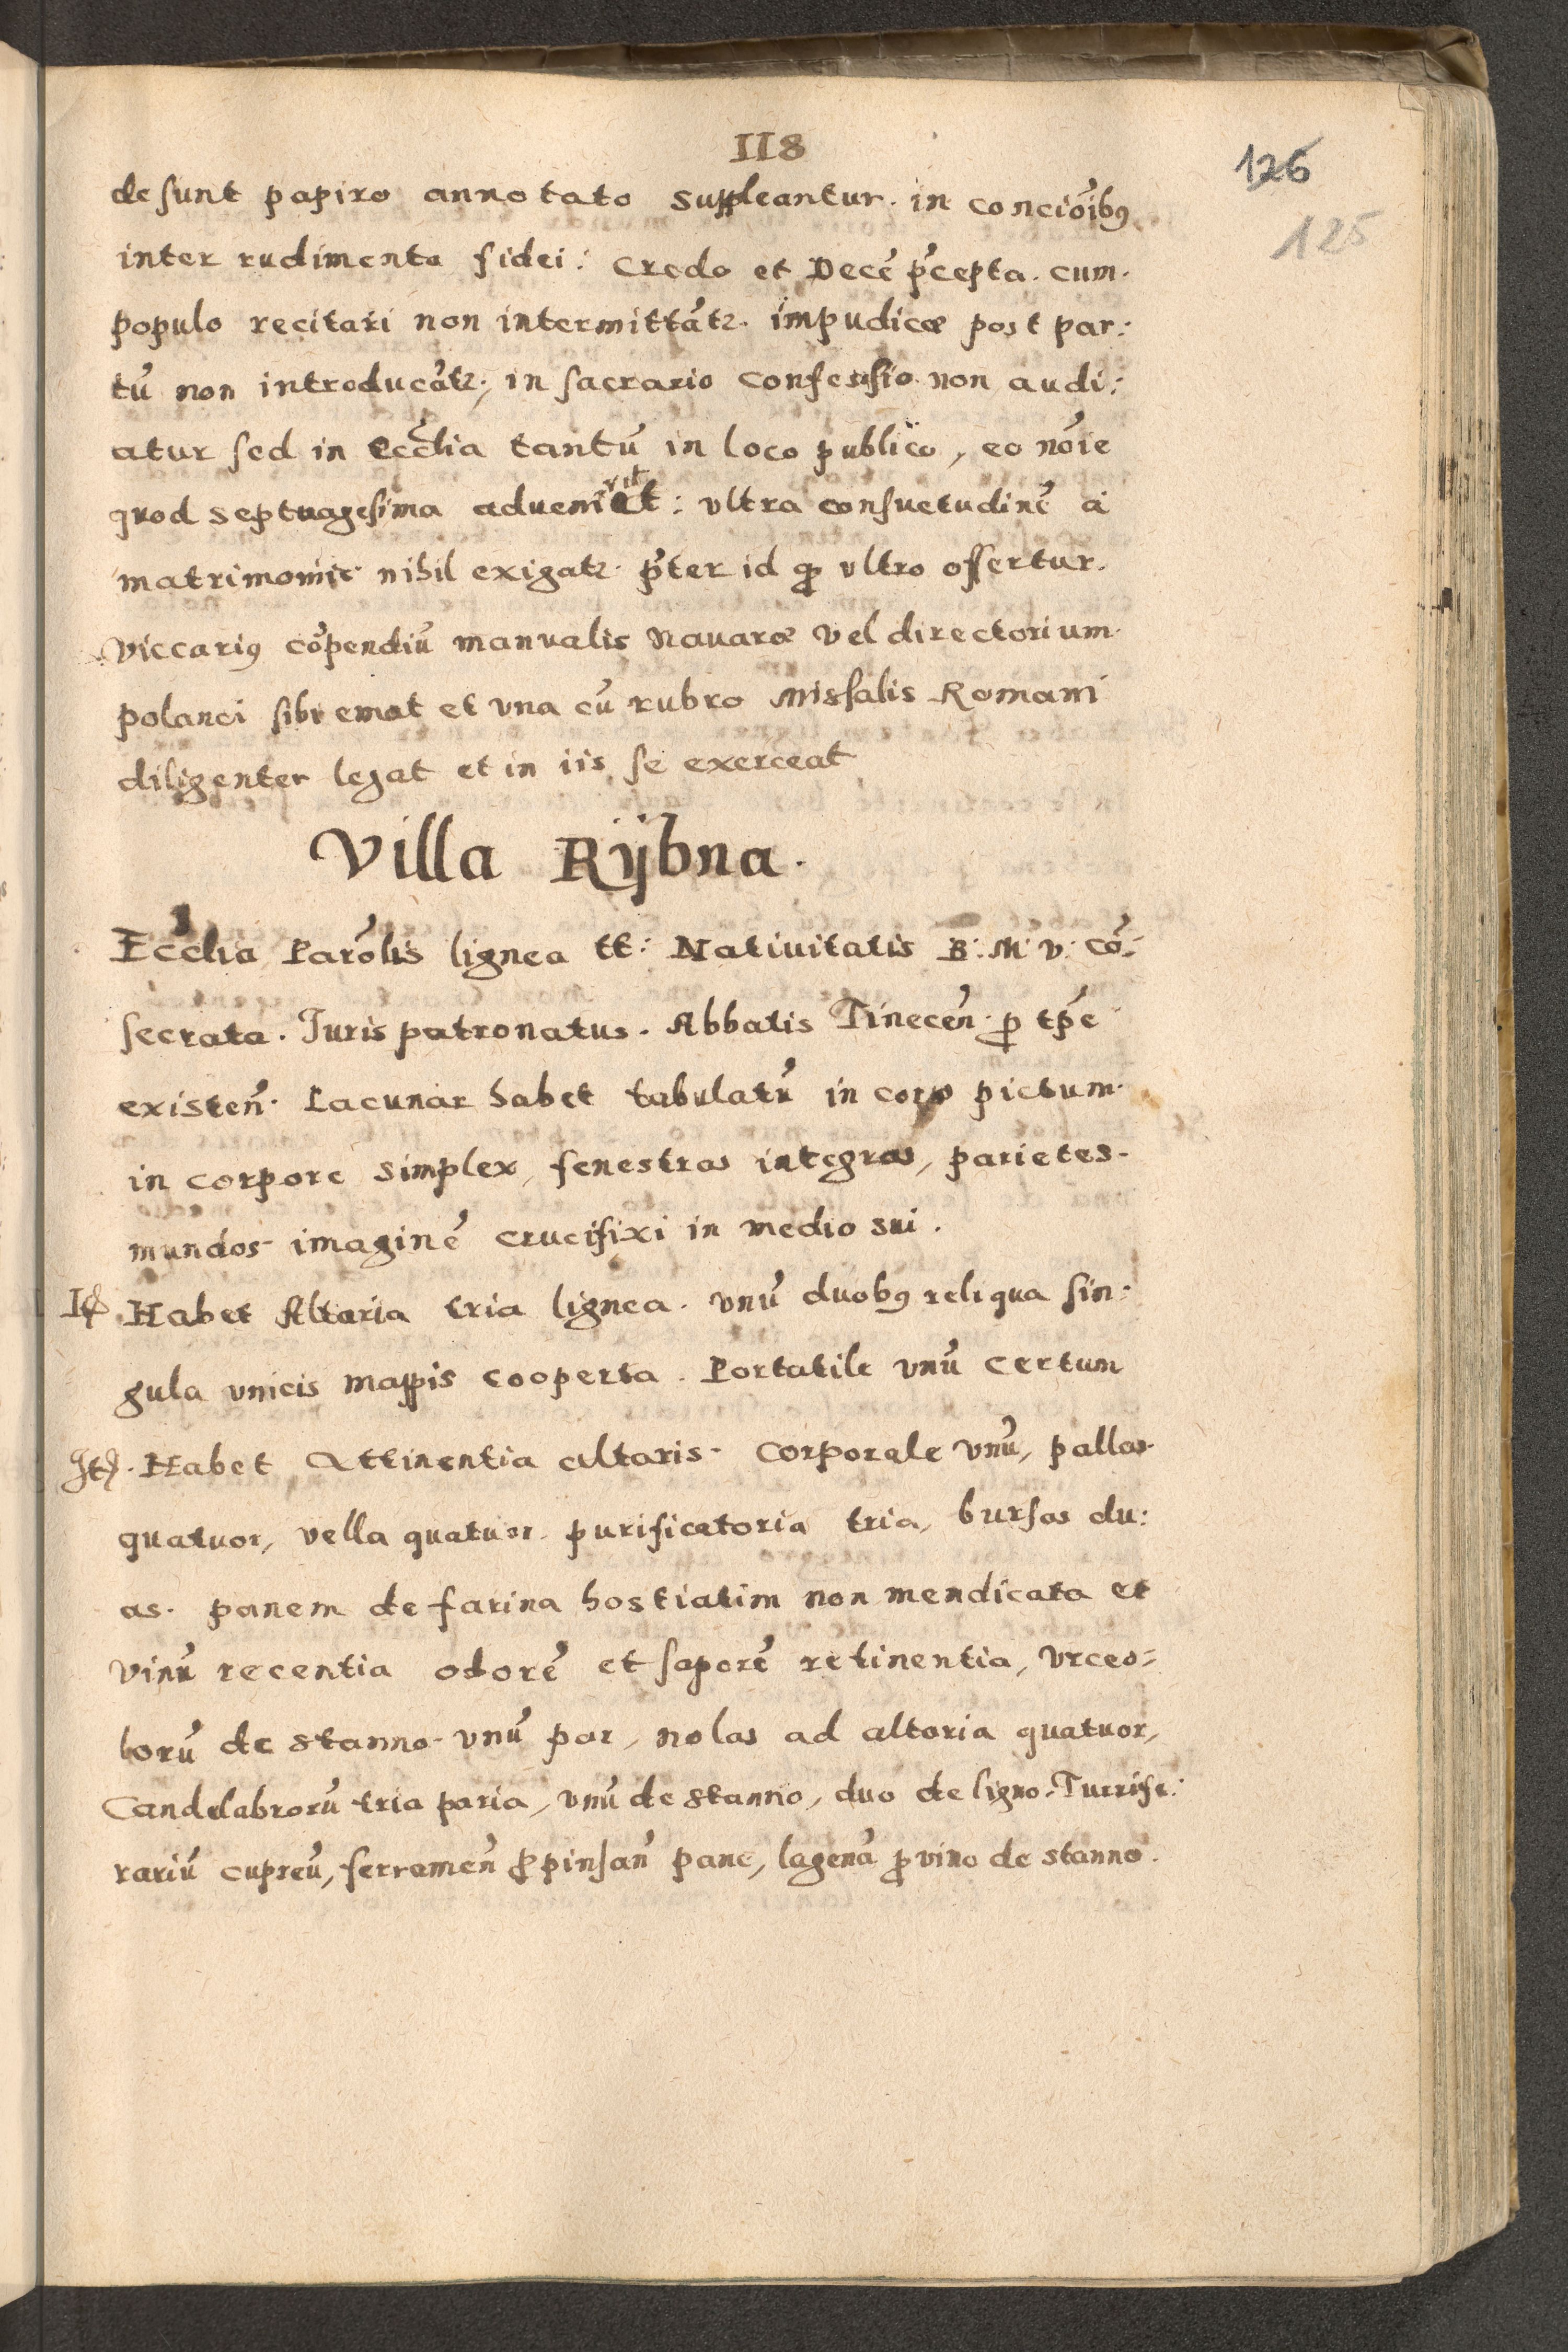 118
126
125
desunt papiro annotato suppleantur. in concio͂ibꝰ
inter rudimenta fidei: Credo et Dece͂ p͂cepta. cum.
populo recitari non intermitta͂tꝛ. impudicæ post par:
tu͂ non introduca͂tꝛ; in sacrario confessio non audi:
atur sed in Eccl͂ia tantu͂ in loco publico, eo no͂ie
quod septuagesima advenit: vltra consuetudine͂ a
matrimonijs nihil exigatꝛ. p͂ter id qꝫ vltro offertur.
Viccariꝰ co͂pendiu͂ manualis Nauaræ vel directorium.
polanci sibi emat et vna cu͂ rubro Missalis Romani
diligenter legat et in iis se exerceat
Villa Rÿbna.
Eccl͂ia Paro͂lis lignea tt: Nativitatis B: M: V: co͂:
secrata. Juris patronatus. Abbatis Tinecen͂. ꝓ tp͂e
existen͂. Lacunar habet tabulatu͂ in coro pictum.
in corpore simplex, fenestras integras, parietes.
mundos imagine͂ crucifixi in medio sui.
Itꝭ Habet Altaria tria lignea. vnu͂ duobꝰ reliqua sin:
gula vnicis mappis cooperta. Portatile vnu͂ certum
Itꝭ. Habet Attinentia altaris. Corporale vnu͂, pallas.
quatuor, vella quatuor. purificatoria tria, bursas du:
as. panem de farina hostiatim non mendicata et
vinu͂ recentia odore͂ et sapore͂ retinentia, vrceo=
loru͂ de stanno. vnu͂ par, nolas ad altaria quatuor,
Candelabroru͂ tria paria, vnu͂ de stanno, duo de ligno. Turrife:
rariu͂ cupreu͂, ferramen͂ ꝓ pinsan͂ pane, lagena͂ ꝓ vino de stanno.